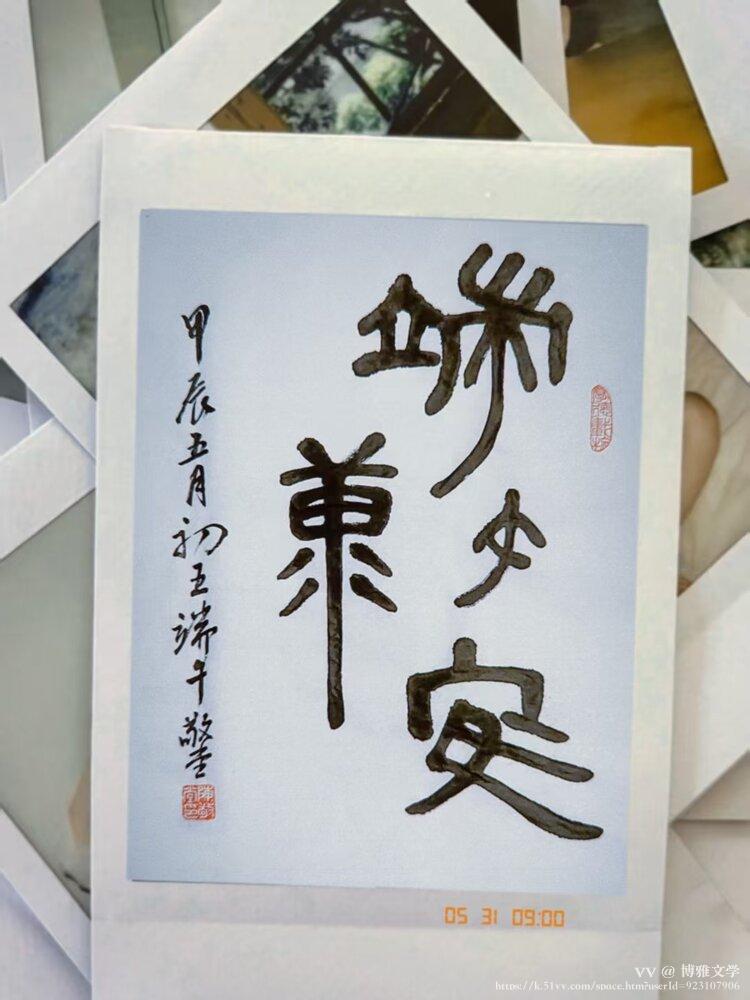 端午安
康
甲辰五月初五端午
05 31 09:00
VV @ 博雅文学
https://k.51vv.com/space.htm?userId=923107906